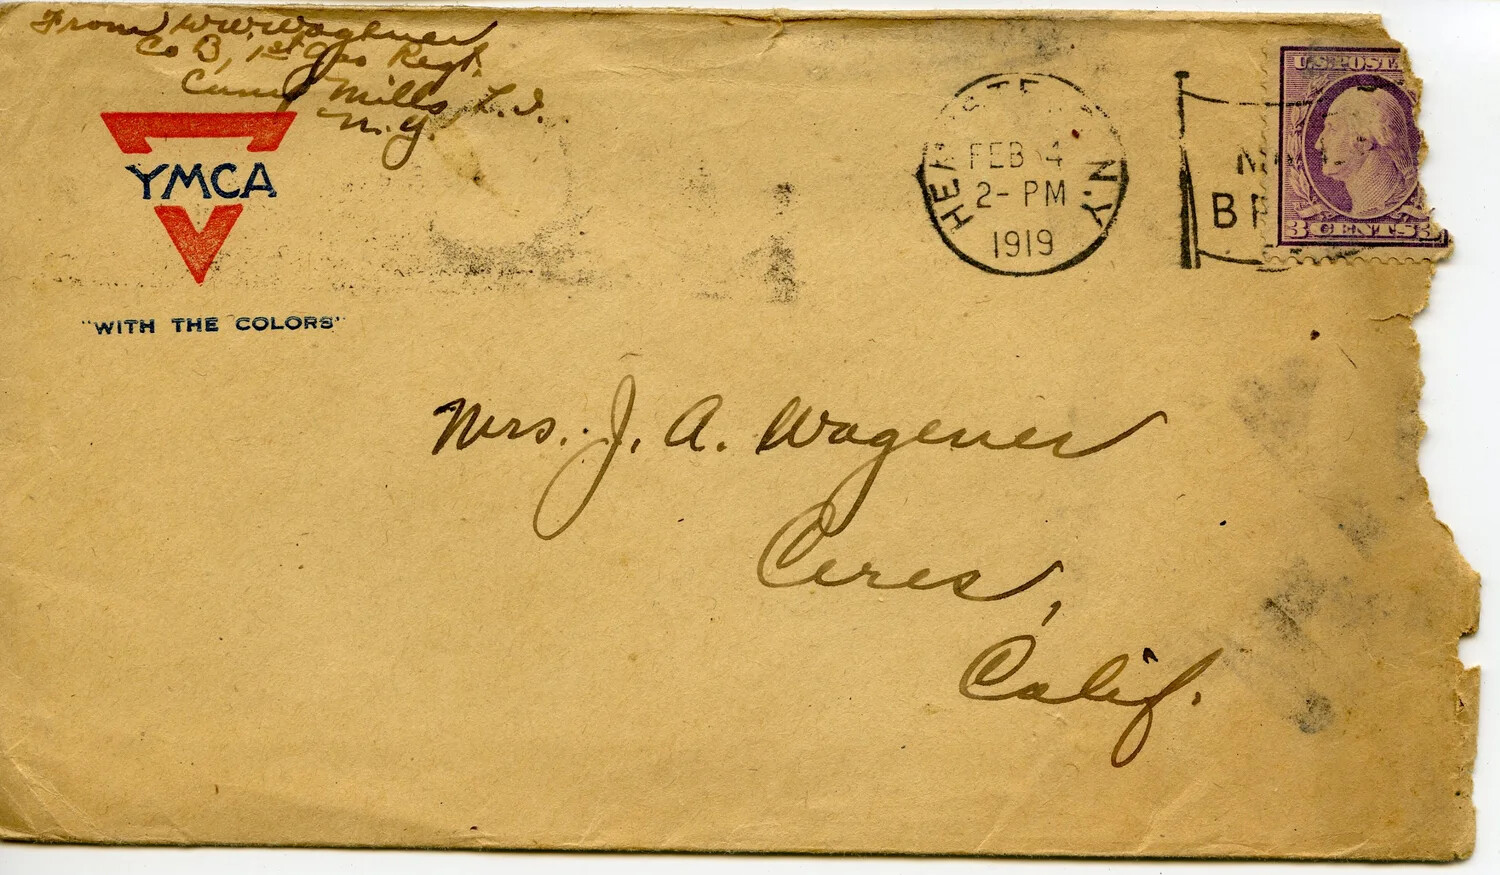 From W.W. Wagener
Co B, 1st Gas Regt.
Camp Mills, L.I.
N.Y.
YMCA
"WITH THE COLORS"
HEMPSTEAD N.Y.
FEB 4
2- PM
1919
U.S. POST
3 CENTS 3
Mrs. J. A. Wagener
Ceres,
Calif.